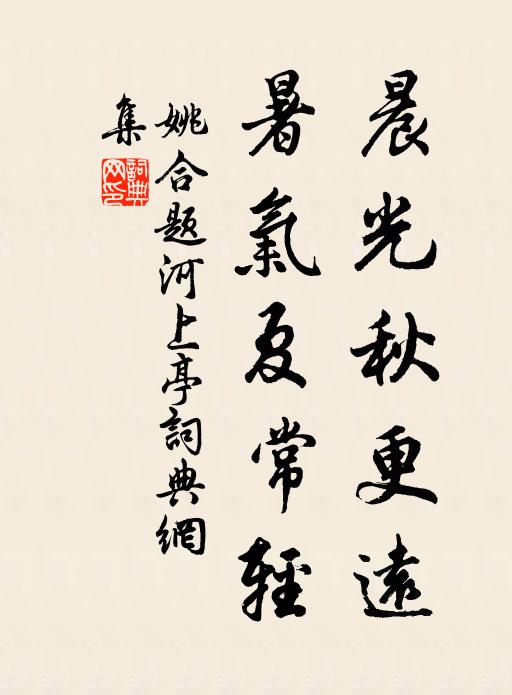 晨光秋更遠
暑氣夏常輕
姚合題河上亭詞典網
集
詞典網印